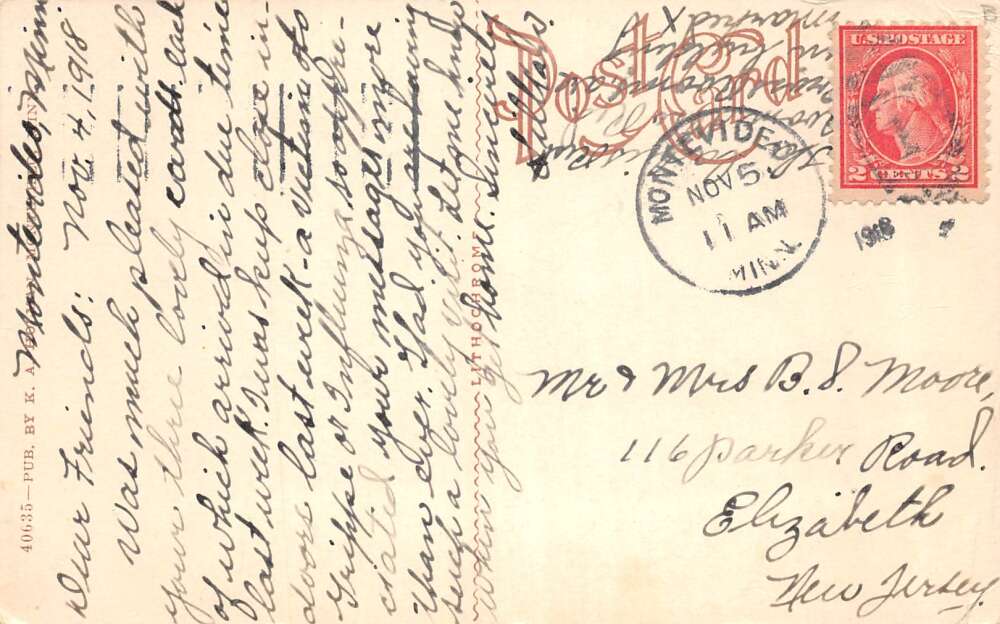 Montevideo, Minn.
Nov 4, 1918
Dear Friends:
Was much pleased with
your three lovely cards all
of which arrived in due time
last week. I was kept close in-
doors last week - a victim to
Grippe or Influenza, so appre-
ciated your messages more
than ever. Glad you are
such a lovely visit. Let me know
when you get home. Sincerely
Post Card
MONTEVIDEO
NOV 5
11 AM
MINN.
1918
U.S. POSTAGE
2 CENTS 2
Mr & Mrs B. S. Moore,
116 Parker Road.
Elizabeth
New Jersey.
40635—PUB. BY K. A.
LITHOCHROME